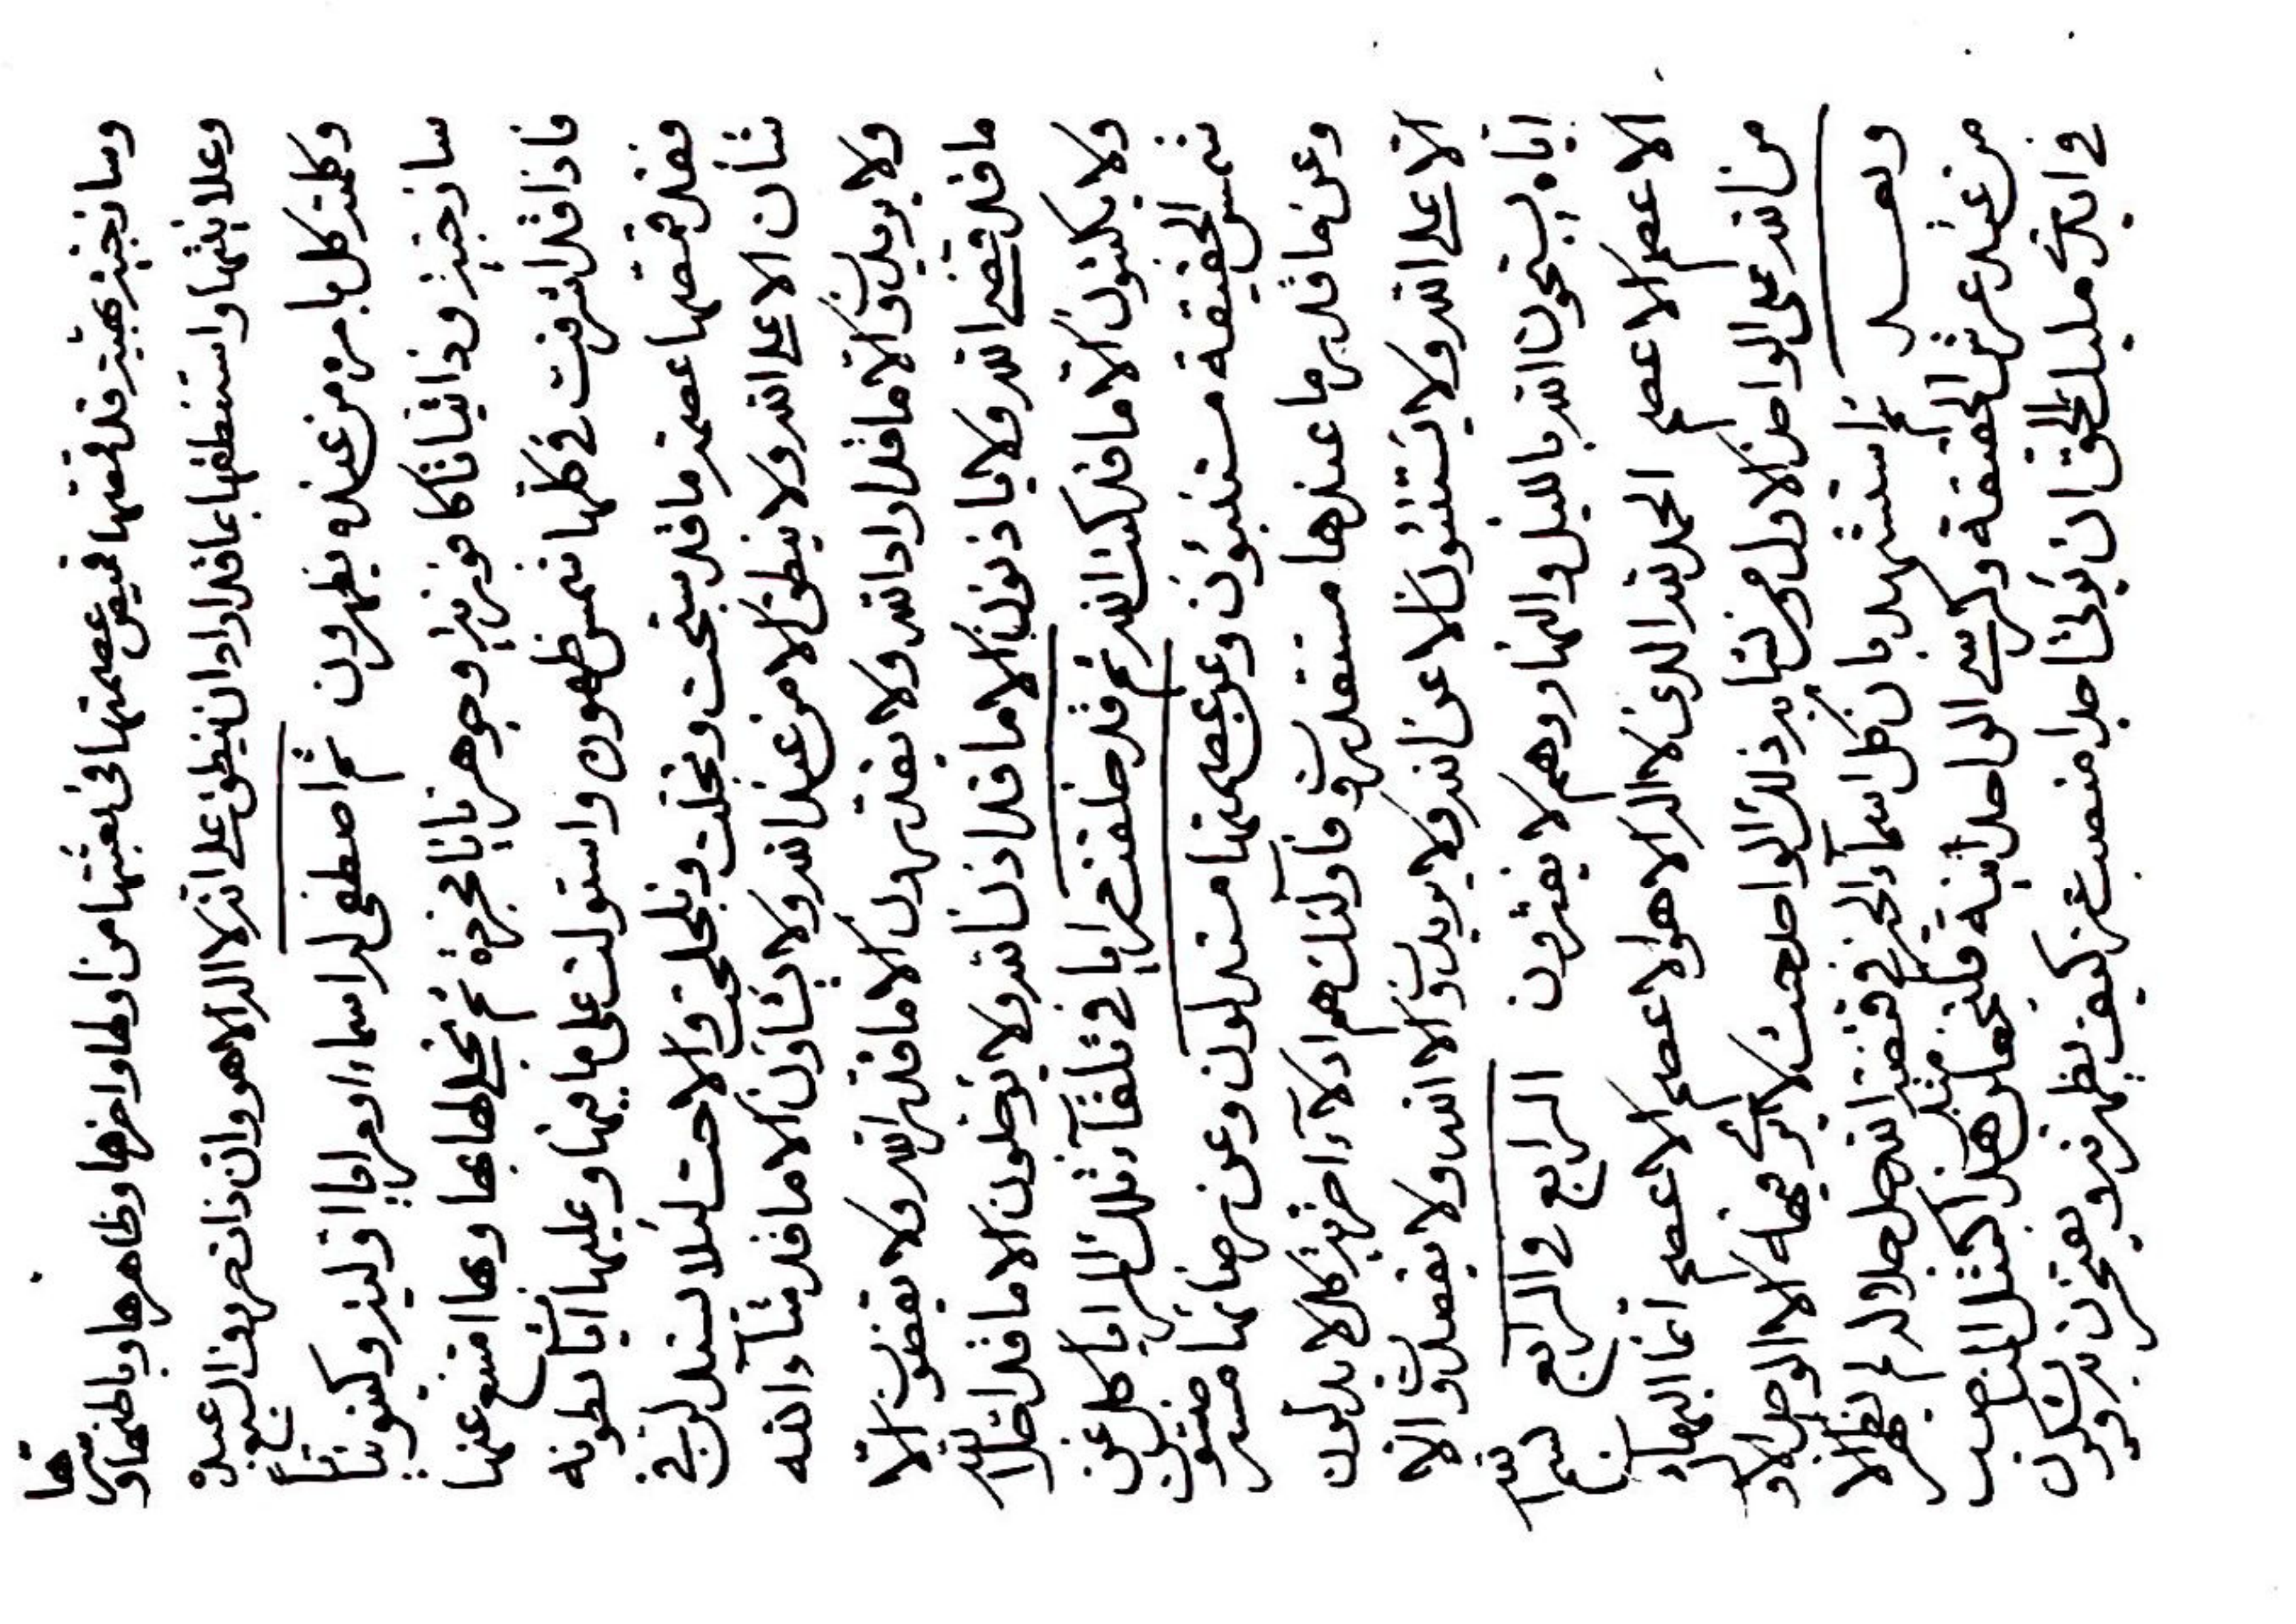 وساذجية هيئة قد قمصتها قميص عصمتها في بعثتها من اولها واخرها وظاهرها وباطنها و
وعلا بنيتها واستنطقها بما قد اراد ان ينطق على انه لا اله الا هو وان ذات حروف السبع عبده
وكلمته كل بامره من عنده يظهرون ثم اصطفى له اسماء ومرايا اولية وكينونيات
ساذجية وذاتيات كافورية وجوهريات مجردة ثم تجلى لها بها وبها امتنع عنها
فاذا قد اشرقت في كلها شمس ظهوره واستولت على ما فيها وعليها ايات بطونه
فقد قمصها عصمة ما قد سبحت وتجلت وتجلجت والاحت لئلا يستدلن في
شأن الا على الله ولا ينطق الا من عند الله ولا يشاؤن الا ما قد شآء الله
ولا يريدون الا ما قد اراد الله ولا يقدرون الا ما قد قدر الله ولا يقضون الا
ما قد قضى الله ولا ياذنون الا ما قد اذن الله ولا يؤجلون الا ما قد اجل الله
ولا يكتبون الا ما قد كتب الله ثم قد خلقت مرايا في تلقآء تلك المرايا كل عن
شمس الحقيقة مستنبؤن وعن عصمتها مستدلون وعن رضائها
وعن ما قدر ما عندها مستقدرون فاولئك هم ادلآء اخرية كل لا يدلون
الا على الله ولا يستنبئون الا عن الله ولا يريدون الا الله ولا يقصدون الا
اياه يسبحون الله بالليل والنهار وهم لا يفترون الرابع في الرابع بسم الله
الاعصم الاعصم الحمد لله الذي لا اله الا هو الاعصم الاعصم انما البهآء
من الله على الواحد الاول ومن يشابه ذلك الواحد حيث لا يرى فيه الا الواحد الاول
وبعد استشهد بان كل اسمآء الخير في قبضة الله جل جلاله لم يظهر الا
من عند عرش الحقيقة وكرسي الواحدانية فلتجعلن هذا كمثل المناصب
في ايدي مليك الحق ان يؤتى احدا منصب عز كيف يظهر فيه ويفتخرن به ويشكرن